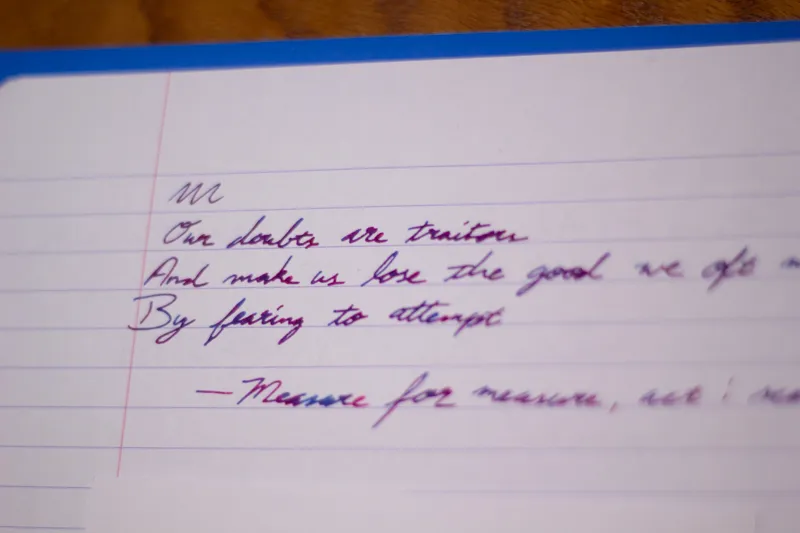 Our doubts are traitors
And make us lose the good we oft
By fearing to attempt
— Measure for measure, act i